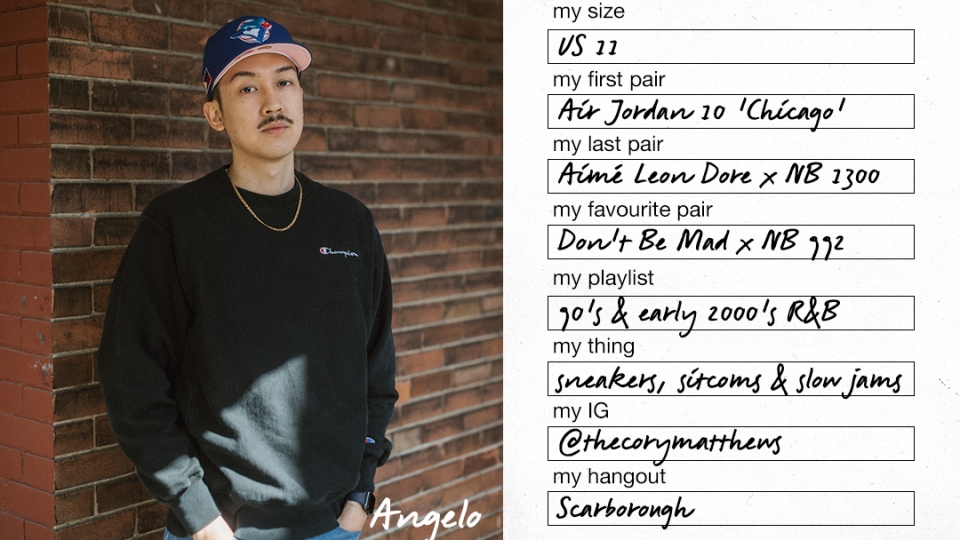 Champion
Angelo
my size
US 11
my first pair
Air Jordan 10 'Chicago'
my last pair
Aimé Leon Dore x NB 1300
my favourite pair
Don't Be Mad x NB 992
my playlist
90's & early 2000's R&B
my thing
sneakers, sitcoms & slow jams
my IG
@thecorymatthews
my hangout
Scarborough